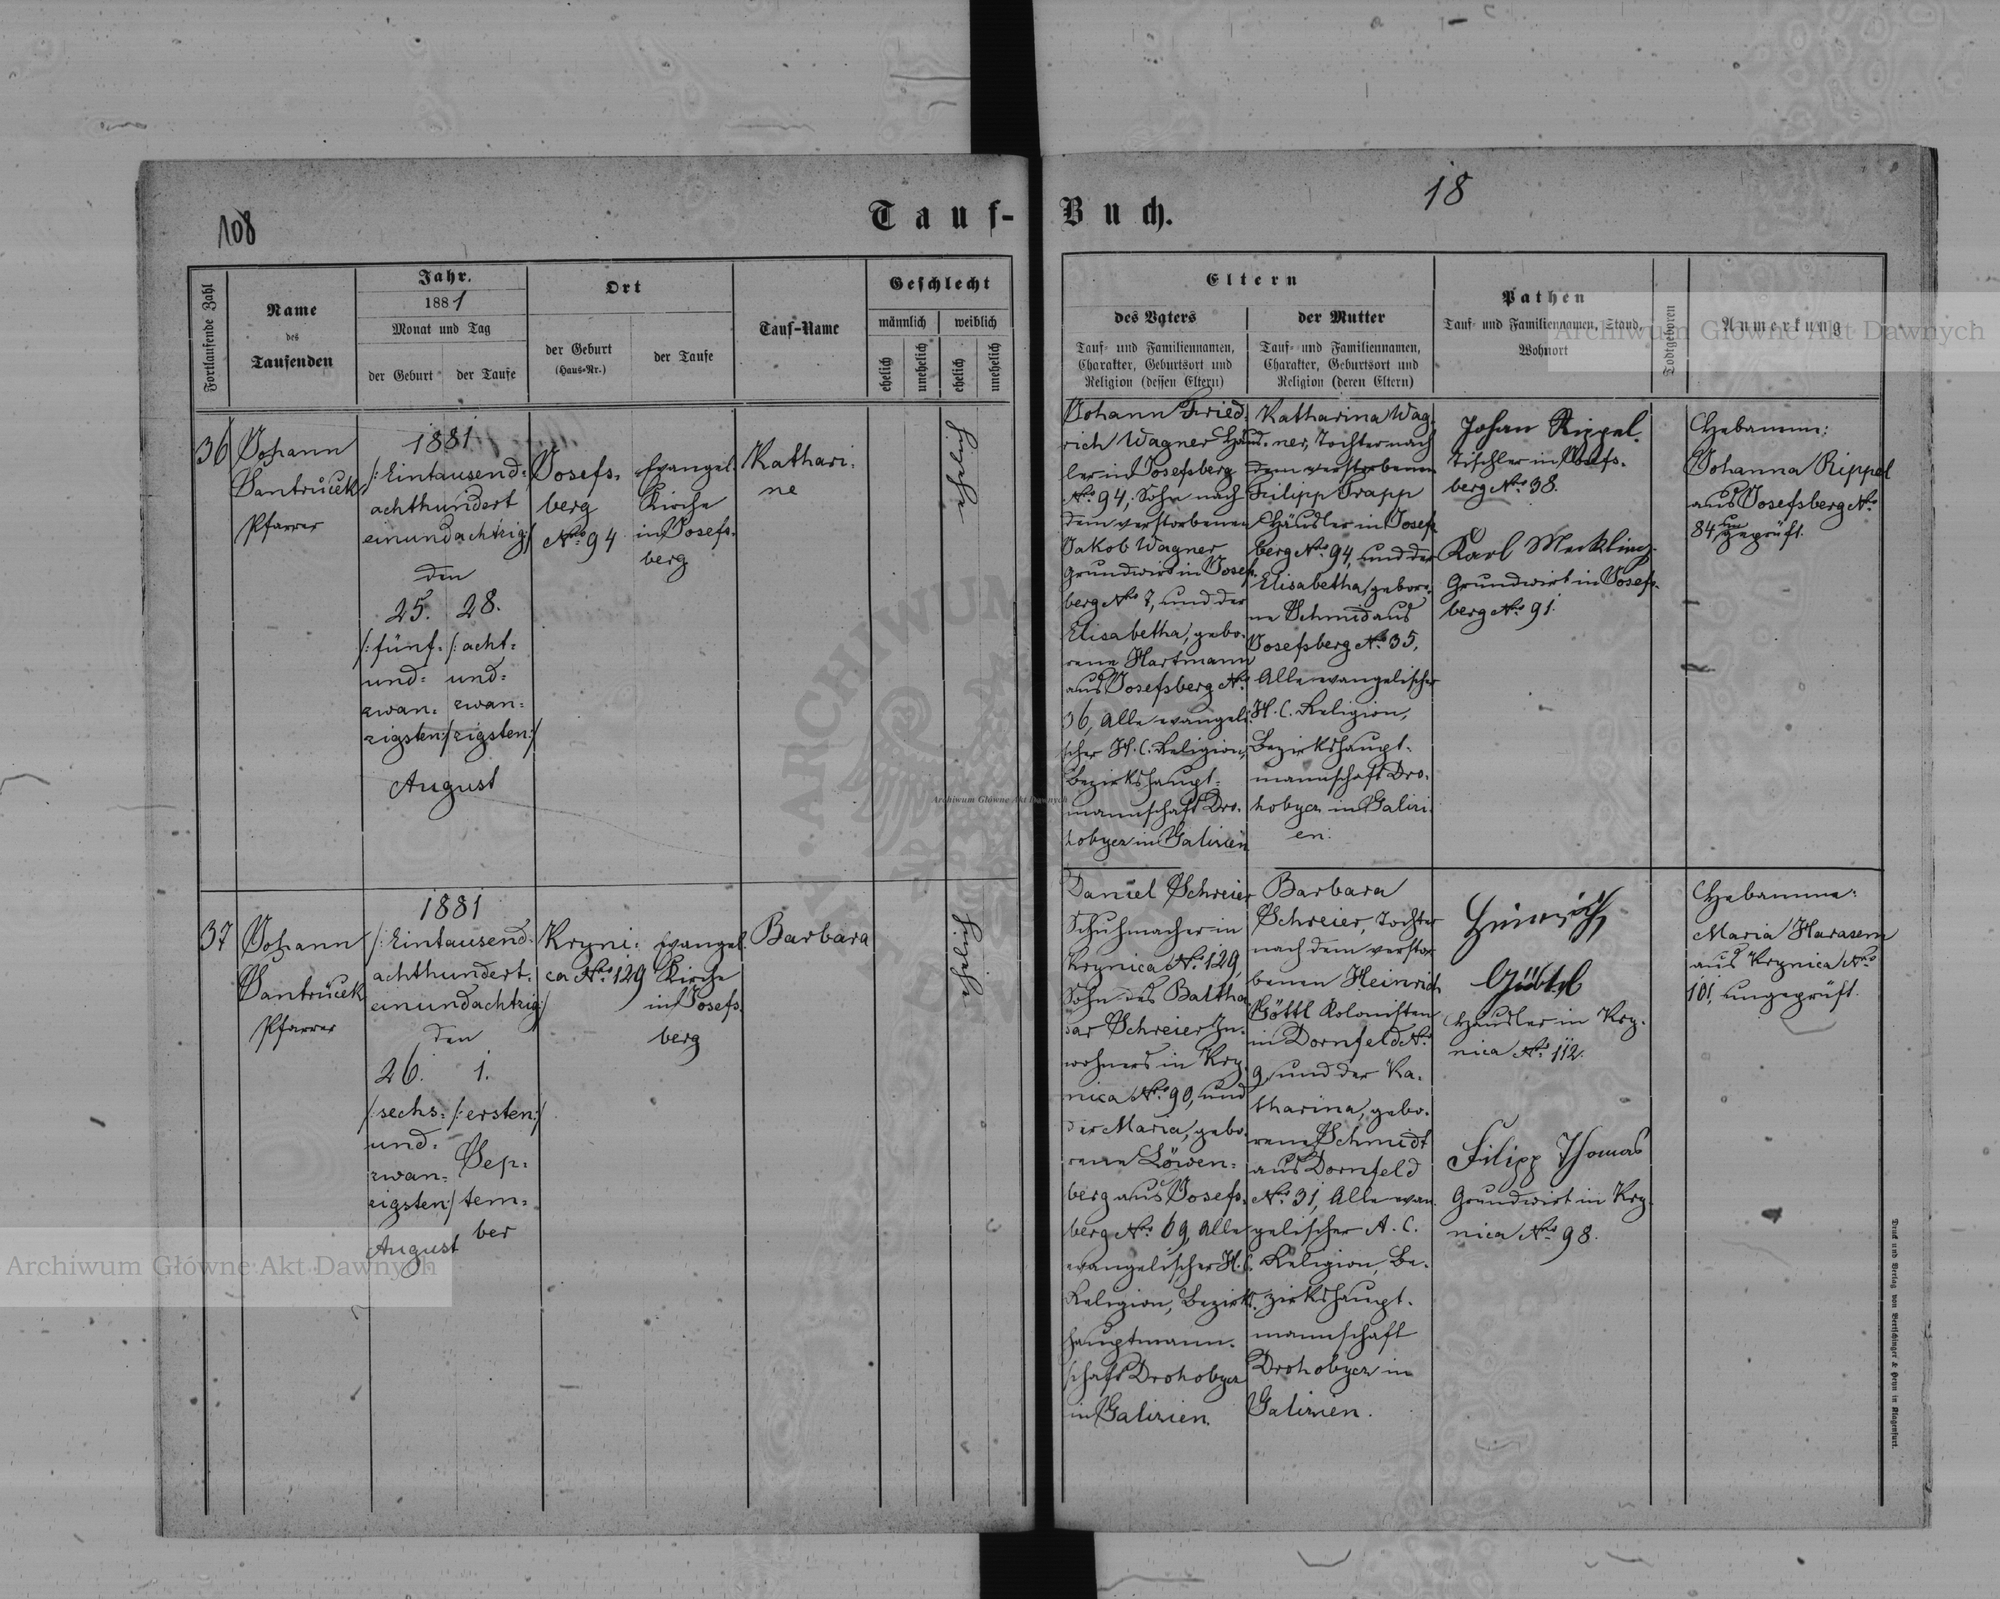 108
Tauf-
Buch.
18
Fortlaufende Zahl
Name
des
Taufenden
Jahr.
1881
Monat und Tag
der Geburt
der Taufe
Ort
der Geburt
(Haus-Nr.)
der Taufe
Tauf-Name
Geschlecht
männlich
weiblich
ehelich
unehelich
ehelich
unehelich
Eltern
des Vaters
Tauf- und Familiennamen,
Charakter, Geburtsort und
Religion (dessen Eltern)
der Mutter
Tauf- und Familiennamen,
Charakter, Geburtsort und
Religion (deren Eltern)
Pathen
Tauf- und Familiennamen, Stand,
Wohnort
Todtgeboren
Anmerkung
36
Johann
Santrůcek
Pfarrer
1881
/:Eintausend=
achthundert
einundachtzig:/
den
25.
/:fünf=
und=
zwan=
zigsten:/
28.
/:acht=
und=
zwan=
zigsten:/
August
Josefs-
berg
Nro 94
Evangel.
Kirche
in Josefs-
berg
Kathari-
ne
ehelich
Johann Fried-
rich Wagner Häud-
ler in Josefsberg
Nro 94, Sohn nach
dem verstorbenen
Jakob Wagner
Grundwirt in Josefs-
berg Nro 7, und der
Elisabetha, gebo-
rene Hartmann
aus Josefsberg No
36, Alle evangeli-
scher H. C. Religion,
Bezirkshaupt-
mannschaft Dro-
hobycz in Galizien
Katharina Wag-
ner, Tochter nach
dem verstorbenen
Filipp Trapp
Häudler in Josefs-
berg Nro 94, und der
Elisabetha, gebore-
ne Schmid aus
Josefsberg No 35,
Alle evangelischer
H. C. Religion,
Bezirkshaupt-
mannschaft Dro-
hobycz in Galizi-
en.
Johan Rippel.
Tischler in Josefs-
berg Nro 38.
Karl Merkling.
Grundwirt in Josefs-
berg No 91.
Hebamm:
Johanna Rippel
aus Josefsberg No
84, ungeprüft.
37
Johann
Santrůcek
Pfarrer
1881
/:Eintausend=
achthundert=
einundachtzig:/
den
26.
/:sechs=
und=
zwan=
zigsten:/
August
1.
/:ersten:/
Sep-
tem-
ber
Kryni-
ca Nro 129
Evangel.
Kirche
in Josefs-
berg
Barbara
ehelich
Daniel Schreier
Schuhmacher in
Krynica No 129,
Sohn des Baltha-
sar Schreier In-
wohners in Kry-
nica Nro 90, und
der Maria, gebo-
rene Löwen-
berg aus Josefs-
berg Nro 69, Alle
evangelischer H. C.
Religion, Bezirks-
hauptmann-
schaft Drohobycz
in Galizien.
Barbara
Schreier, Tochter
nach dem verstor-
benen Heinrich
Göttl Kolonisten
in Dornfeld No
9, und der Ka-
tharina, gebo-
rene Schmidt
aus Dornfeld
No 31, Alle evan-
gelischer A. C.
Religion, Be-
zirkshaupt-
mannschaft
Drohobycz in
Galizien.
Heinrich
Häudler in Kry-
nica No 112.
Filipp Thomas
Grundwirt in Kry-
nica No 98.
Hebamme:
Maria Harasem
aus Krynica Nro
101, ungeprüft.
Druck und Verlag von Bertschinger & Heyn in Klagenfurt.
Archiwum Główne Akt Dawnych
Archiwum Główne Akt Dawnych
Archiwum Główne Akt Dawnych